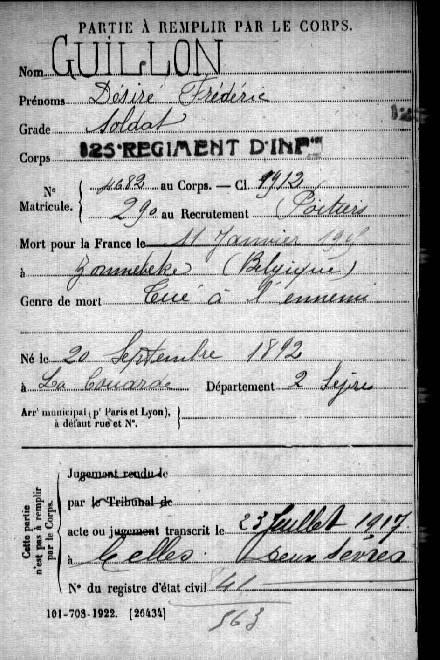 PARTIE À REMPLIR PAR LE CORPS.
Nom GUILLON
Prénoms Désiré Frédéric
Grade Soldat
Corps 125e REGIMENT D'INFie
No Matricule. 4683 au Corps. — Cl. 1912
290 au Recrutement Poitiers
Mort pour la France le 11 Janvier
à Zonnebeke (Belgique)
Genre de mort Tué à l'ennemi
Né le 20 Septembre 1892
à La Couarde Département 2 Sèvre
Arrt municipal (pr Paris et Lyon),
à défaut rue et No.
Cette partie n'est pas à remplir par le Corps.
Jugement rendu le
par le Tribunal de
acte ou jugement transcrit le 23 Juillet 1917
à Celles Deux Sèvres
No du registre d'état civil 41
563
101-708-1922. [26434]